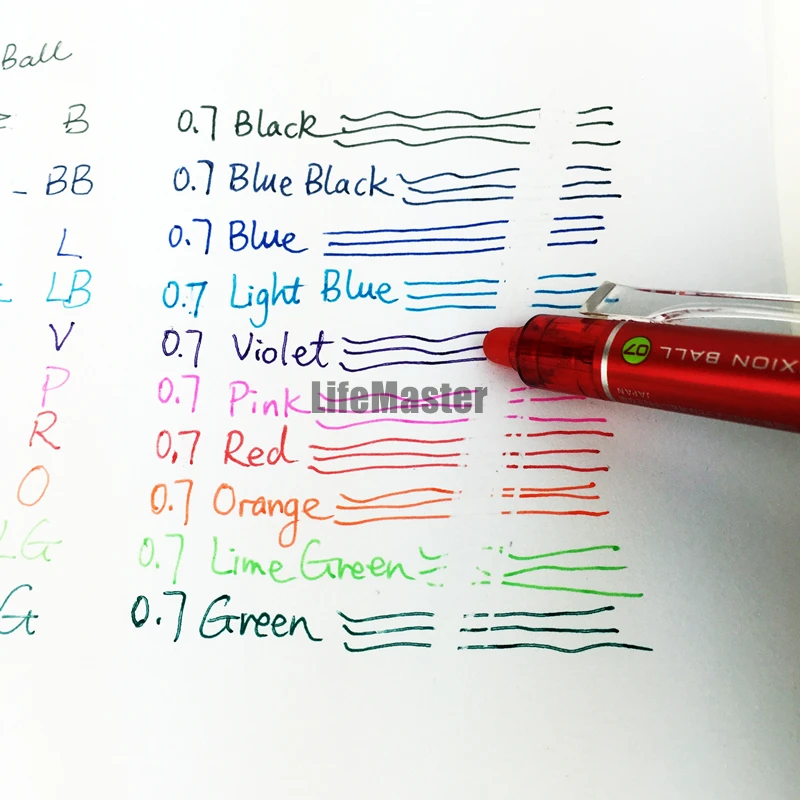 Ball
B 0.7 Black
BB 0.7 Blue Black
L 0.7 Blue
LB 0.7 Light Blue
V 0.7 Violet
XION BALL 07
JAPAN
P 0.7 Pink
LifeMaster
R 0.7 Red
O 0.7 Orange
LG 0.7 Lime Green
G 0.7 Green